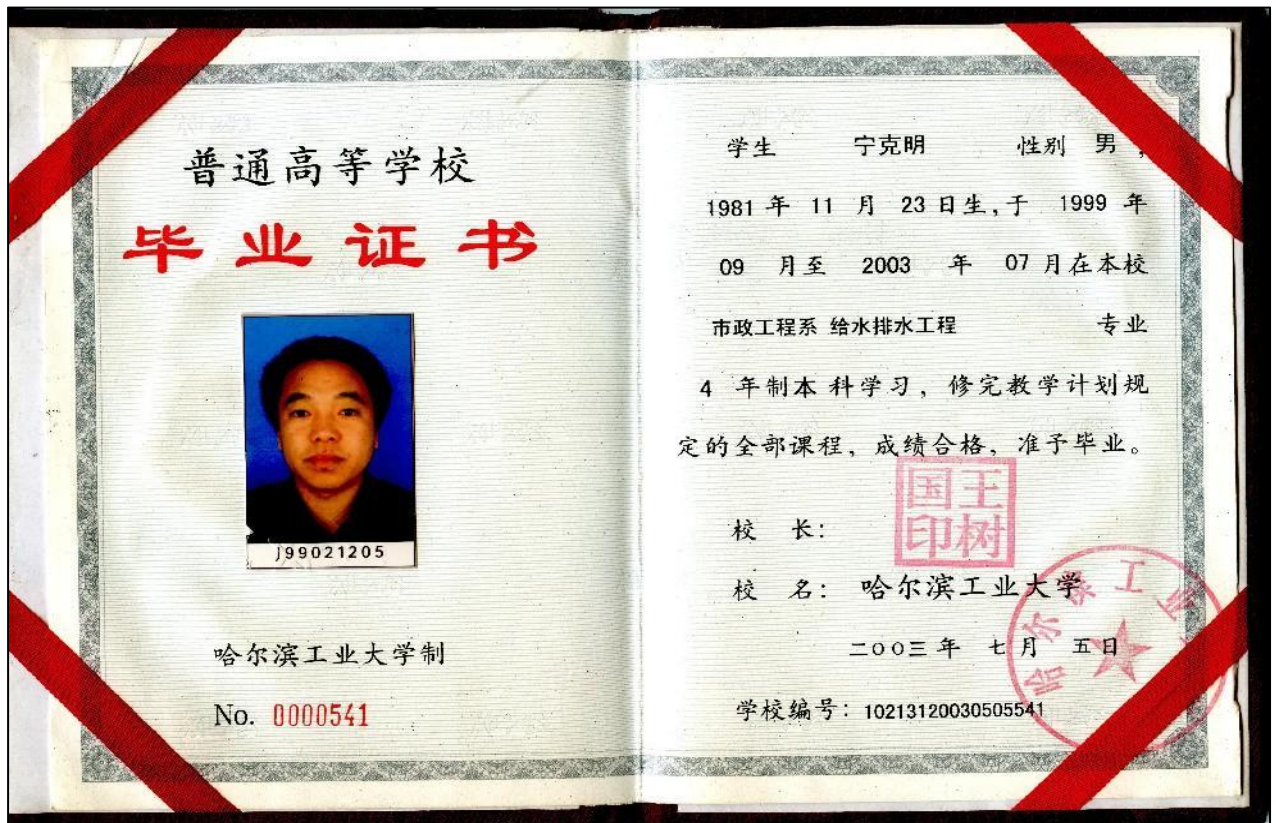 普通高等学校
毕业证书
J99021205
哈尔滨工业大学制
No. 0000541
学生 宁克明 性别 男,
1981 年 11 月 23 日生,于 1999 年
09 月至 2003 年 07 月在本校
市政工程系 给水排水工程 专业
4 年制本科学习，修完教学计划规
定的全部课程，成绩合格，准予毕业。
校 长：
王树国印
校 名：哈尔滨工业大学
二〇〇三年 七月 五日
学校编号：10213120030505541
哈尔滨工业